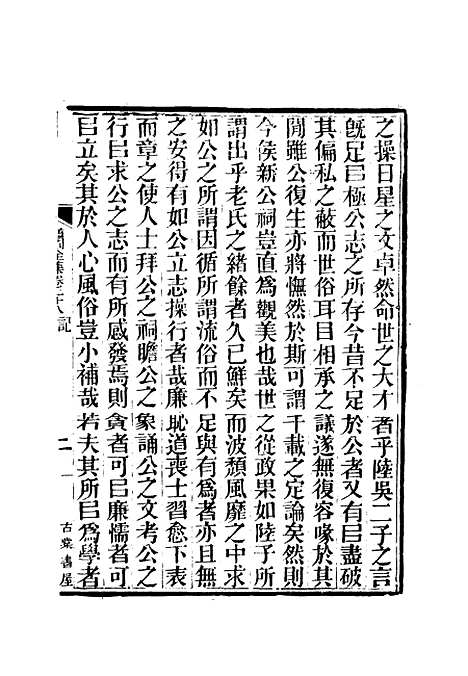 之操日星之文卓然命世之大才者乎陸吳二子之言
旣足㠯極公志之所存今昔不足於公者又有㠯盡破
其偏私之蔽而世俗耳目相承之議遂無復容喙於其
閒雖公復生亦將憮然於斯可謂千載之定論矣然則
今侯新公祠豈直爲觀美也哉世之從政果如陸子所
謂出乎老氏之緒餘者久已鮮矣而波頽風靡之中求
如公之所謂因循所謂流俗而不足與有爲者亦且無
之安得有如公立志操行者哉廉恥道喪士習愈下表
而章之使人士拜公之祠瞻公之象誦公之文考公之
行㠯求公之志而有所感發焉則貪者可㠯廉懦者可
㠯立矣其於人心風俗豈小補哉若夫其所㠯爲學者
全集卷二十八記
二
古棠書屋